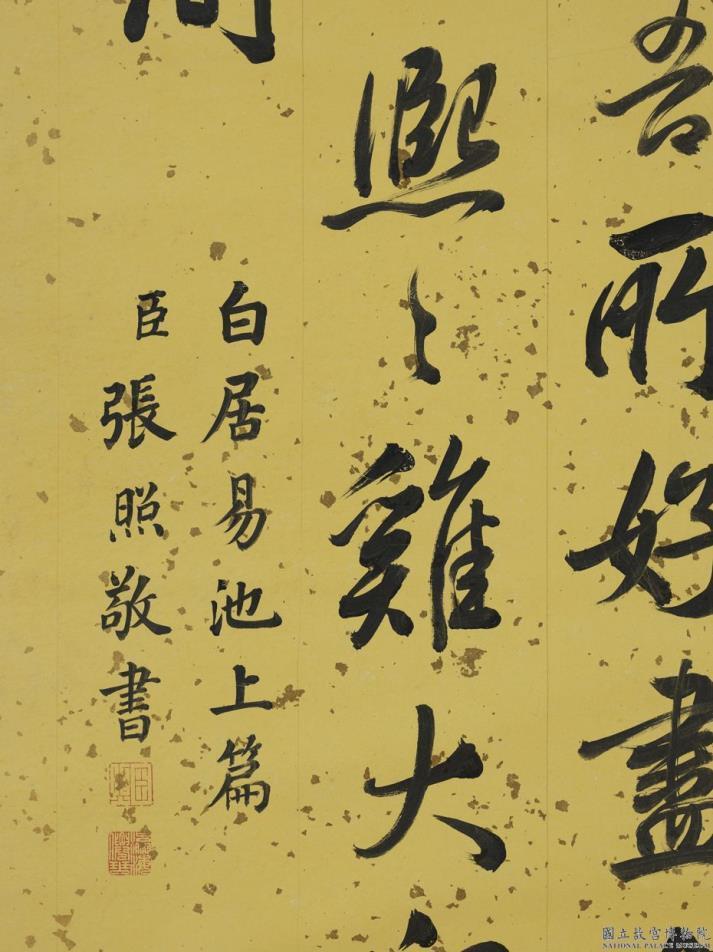 吾所好盡
熙〻雞犬
白居易池上篇
臣張照敬書
國立故宮博物院
NATIONAL PALACE MUSEUM